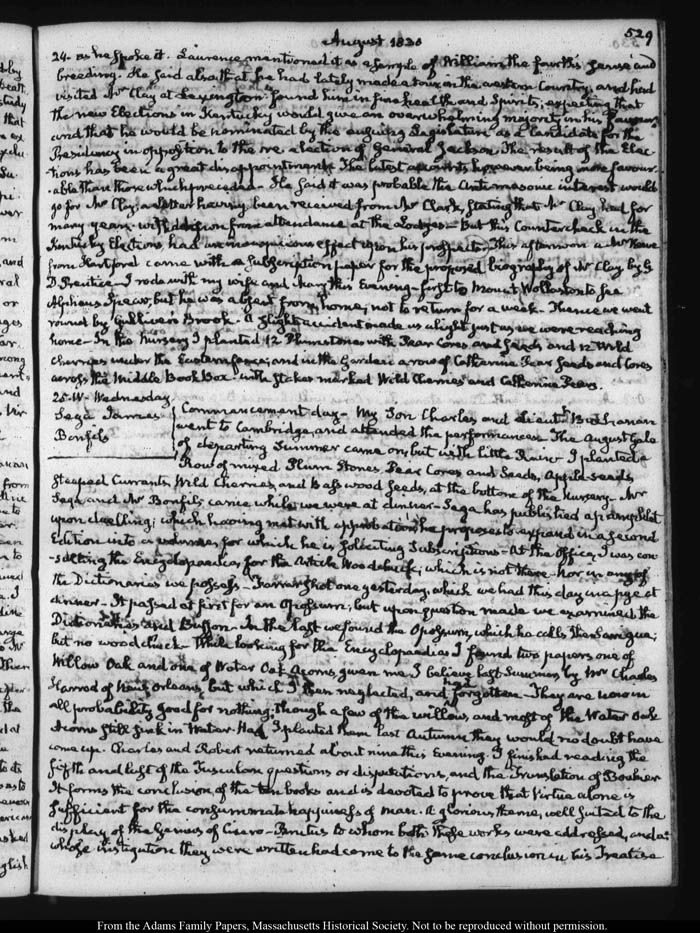 August 1830
529
24. as he spoke it. Laurence mentioned it as a sample of William the fourth's sense and
breeding. He said also that he had lately made a tour in the western Country, and had
visited Mr Clay at Lexington. Found him in fine health and Spirits; expecting that
the new Elections in Kentucky would give an overwhelming majority in his favour,
and that he would be nominated by the ensuing Legislature as a Candidate for the
Presidency in opposition to the re-election of General Jackson. The result of the Elec-
tions has been a great disappointment. The latest accounts however being more favour-
-able than those which preceded. He said it was probable the Antimasonic interest would
go for Mr Clay; a letter having been received from Mr Clark, stating that Mr Clay had for
many years withdrawn from attendance at the Lodges. But this Countercheck in the
Kentucky Elections, had an inauspicious effect upon his prospects. This afternoon a Mr Howe
from Hartford came with a Subscription paper for the proposed biography of Mr Clay by G
D. Prentice. I rode with my wife and Mary this Evening first to Mount Wollaston to see
Alpheus Spear, but he was absent from home, not to return for a week. Thence we went
round by Gulliver's Brook. A slight accident made us alight just as we were reaching
home. In the Nursery I planted 12 Plumstones with Pear Cores and Seeds and 12 Wild
cherries under the Eastern fence; and in the Garden a row of Catherine Pear Seeds and Cores
across the Middle Book Box with Stakes marked Wild Cherries and Catherine Pears.
25. W. Wednesday
Sega James
Bonfils
Commencement day. My Son Charles and Lieutt. Buchanan
went to Cambridge, and attended the performances. The August Gale
of departing Summer came on, but with little Rain. I planted a
Row of mixed Plum Stones, Pear Cores and Seeds, Apple seeds
steeped Currants, Wild Cherries, and Basswood Seeds, at the bottom of the Nursery. Mr
Sega and Mr Bonfils came while we were at dinner. Sega has published a pamphlet
upon duelling; which having met with approbation, he proposes to expand in a second
Edition into a volume, for which he is soliciting Subscriptions. At the Office, I was con-
-sulting the Encyclopaedia, for the Article Woodchuck; which is not there. Nor in any of
the Dictionaries we possess. Farrar shot one yesterday, which we had this day in a pye at
dinner. It passed at first for an Opossum; but upon question made we examined the
Dictionaries and Buffon. In the last we found the Opossum, which he calls the Sarigue;
but no woodchuck. While looking for the Encyclopaedias I found two papers one of
Willow Oak and one of Water Oak Acorns, given me I believe last Summer by Mr Charles
Harrod of New Orleans, but which I then neglected, and had forgotten. They are now in
all probability good for nothing; though a few of the willow, and most of the Water Oak
Acorns still sink in Water. Had I planted them last Autumn they would no doubt have
come up. Charles and Robert returned about nine this Evening. I finished reading the
fifth and last of the Tusculan questions or disputations, and the Translation of Bouhier
It forms the conclusion of the ten books and is devoted to prove that Virtue alone is
sufficient for the consummate happiness of man. A glorious theme, well suited to the
display of the Genius of Cicero. Brutus to whom both those works were addressed, and at
whose instigation they were written had come to the same conclusion in his Treatise
From the Adams Family Papers, Massachusetts Historical Society. Not to be reproduced without permission.